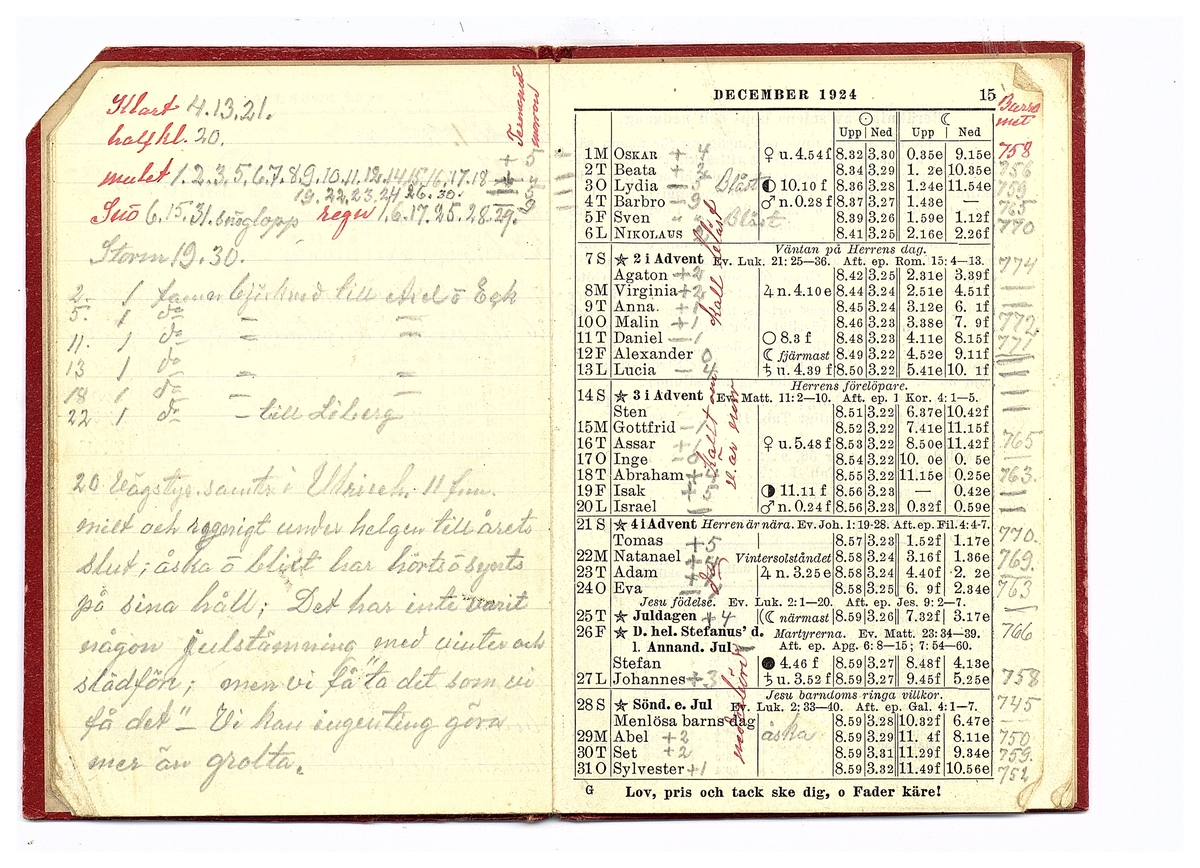 Klart 4.13.21.
halfkl. 20.
mulet 1.2.3.5.6.7.8.9.10.11.12.14.15.16.17.18
19.22.23.24.26.30.
Snö 6.15.31. snöglopp regn 1.6.17.25.28.29.
Storm 19.30.
2. 1 famn björkved till
5. 1 do — —
11. 1 do — —
13 1 do
18 1 do — —
22 1 do — till Löberg
20 Vägstyr. samtr. i 11 fm.
milt och regnigt under helgen till årets
slut; åska ö blixt har hörts ö synts
på sina håll; Det har inte varit
någon julstämning med vinter och
slädfön; men vi få "ta det som vi
få det" – Vi kan ingenting göra
mer än grolta.
DECEMBER 1924 15
Barro
met
Upp Ned Upp Ned
1 M OSKAR + 4 ♀ u. 4.54 f 8.32 3.30 0.35e 9.15e 758
2 T Beata 8.34 3.29 1. 2e 10.35e 756
3 O Lydia Blåst 10.10 f 8.36 3.28 1.24e 11.54e 759
4 T Barbro — 9 ♂ n. 0.28 f 8.37 3.27 1.43e — 765
5 F Sven Blåst 8.39 3.26 1.59e 1.12f
6 L NIKOLAUS 8.41 3.25 2.16e 2.26f 770
Väntan på Herrens dag.
7 S ★ 2 i Advent Ev. Luk. 21: 25—36. Aft. ep. Rom. 15: 4—13. 774
Agaton +2 8.42 3.25 2.31e 3.39f
8 M Virginia +2 ♃ n. 4.10 e 8.44 3.24 2.51e 4.51f
9 T Anna. 8.45 3.24 3.12e 6. 1f
10 O Malin +1 8.46 3.23 3.38e 7. 9f 772
11 T Daniel — 1 8.3 f 8.48 3.23 4.11e 8.15f 771
12 F Alexander 0 ☾ fjärmast 8.49 3.22 4.52e 9.11f
13 L Lucia — 4 ♄ u. 4.39 f 8.50 3.22 5.41e 10. 1f
Herrens förelöpare.
14 S ★ 3 i Advent Ev. Matt. 11: 2—10. Aft. ep. 1 Kor. 4: 1—5.
Sten 8.51 3.22 6.37e 10.42f
15 M Gottfrid 8.52 3.22 7.41e 11.15f
16 T Assar ♀ u. 5.48 f 8.53 3.22 8.50e 11.42f 765
17 O Inge 8.54 3.22 10. 0e 0. 5e
18 T Abraham 8.55 3.22 11.15e 0.25e 763.
19 F Isak 11.11 f 8.56 3.23 — 0.42e
20 L Israel ♂ n. 0.24 f 8.56 3.23 0.32f 0.59e
21 S ★ 4 i Advent Herren är nära. Ev. Joh. 1: 19-28. Aft. ep. Fil. 4: 4-7.
Tomas +5 8.57 3.23 1.52f 1.17e 770.
22 M Natanael Vintersolståndet 8.58 3.24 3.16f 1.36e 769.
23 T Adam ♃ n. 3.25 e 8.58 3.24 4.40f 2. 2e
24 O Eva 8.58 3.25 6. 9f 2.34e 763
Jesu födelse. Ev. Luk. 2: 1—20. Aft. ep. Jes. 9: 2—7.
25 T ★ Juldagen +4 ☾ närmast 8.59 3.26 7.32f 3.17e
26 F ★ D. hel. Stefanus' d. Martyrerna. Ev. Matt. 23: 34—39. 766
l. Annand. Jul Aft. ep. Apg. 6: 8—15; 7: 54—60.
Stefan 4.46 f 8.59 3.27 8.48f 4.13e
27 L Johannes +3 ♄ u. 3.52 f 8.59 3.27 9.45f 5.25e 758
Jesu barndoms ringa villkor.
28 S ★ Sönd. e. Jul Ev. Luk. 2: 33—40. Aft. ep. Gal. 4: 1—7. 745
Menlösa barns dag 8.59 3.28 10.32f 6.47e
29 M Abel +2 åska 8.59 3.29 11. 4f 8.11e 750
30 T Set +2 8.59 3.31 11.29f 9.34e 759.
31 O Sylvester +1 8.59 3.32 11.49f 10.56e 752
G Lov, pris och tack ske dig, o Fader käre!